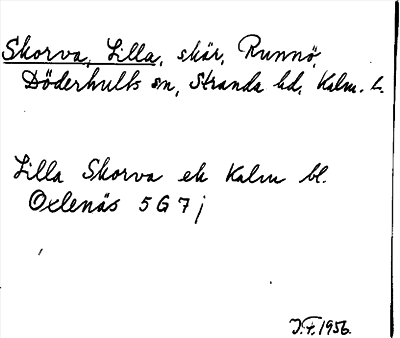 Skorva, Lilla, skär, Runnö,
Döderhults sn, Stranda hd, Kalm. l.
Lilla Skorva ek Kalm bl.
Oxlenäs 5 G 7 j
J.F. 1956.